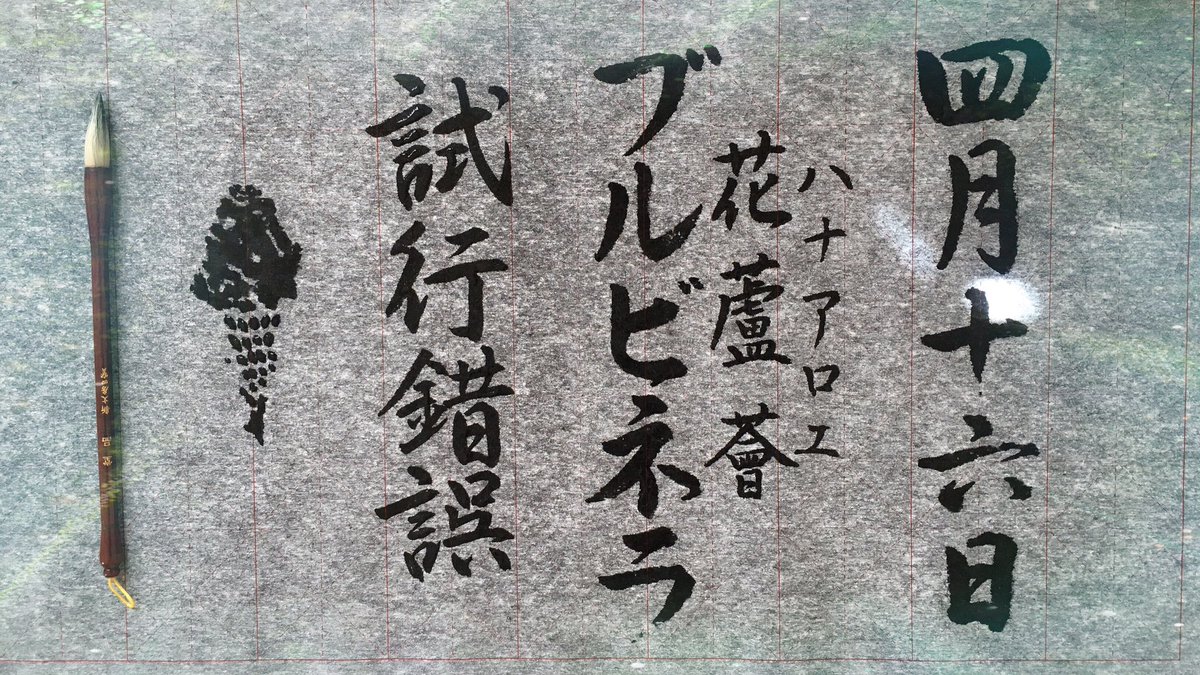 四月十六日
ハナアロエ
花蘆薈
ブルビネラ
試行錯誤